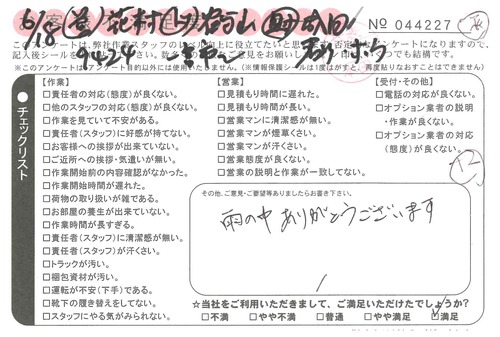 No 044227
このアンケートは、弊社作業スタッフのレベル向上に役立てたいと思
アンケートになりますので、
記入後シールを
でも結構です。
(※このアンケートはアンケート目的以外には使用いたしません。)(※情報保護シールは1度はがすと、再度貼りなおすことはできません)
●チェックリスト
【作業】
□責任者の対応(態度)が良くない。
□他のスタッフの対応(態度)が良くない。
□作業を見ていて不安がある。
□責任者(スタッフ)に好感が持てない。
□お客様への挨拶が出来ていない。
□ご近所への挨拶・気遣いが無い。
□作業開始前の内容確認がなかった。
□作業開始時間が遅れた。
□荷物の取り扱いが雑である。
□お部屋の養生が出来ていない。
□作業時間が長すぎる。
□責任者(スタッフ)に清潔感が無い。
□責任者(スタッフ)が汗くさい。
□トラックが汚い。
□梱包資材が汚い。
□運転が不安(下手)である。
□靴下の履き替えをしてない。
□スタッフにやる気がみられない。
【営業】
□見積もり時間に遅れた。
□見積もり時間が長い。
□営業マンに清潔感が無い。
□営業マンが煙草くさい。
□営業マンが汗くさい。
□営業態度が良くない。
□営業の説明と作業が一致してない。
【受付・その他】
□電話の対応が良くない。
□オプション業者の説明
・作業が良くない。
□オプション業者の対応
(態度)が良くない。
その他、ご意見・ご要望等ありましたらお書き下さい。
雨の中ありがとうございます
☆当社をご利用いただきまして、ご満足いただけたでしょうか?
□不満 □やや不満 □普通 □やや満足 ☑満足